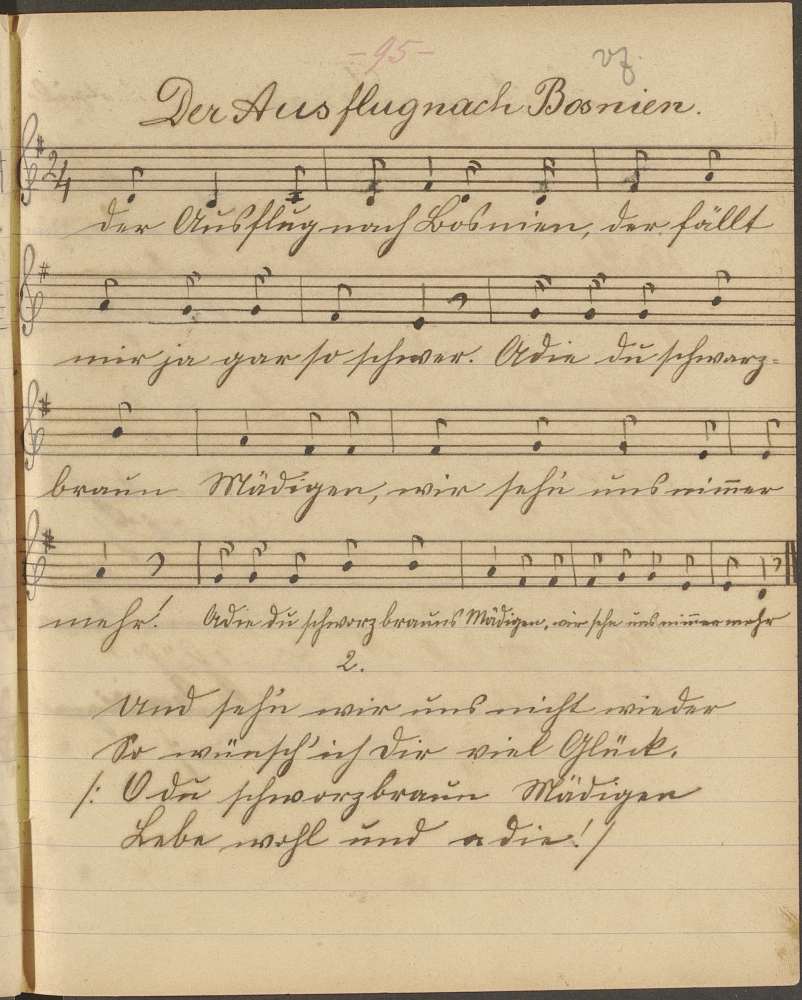 -95-
vz.
Der Ausflug nach Bosnien.
2/4
der Ausflug nach Bosnien, der fällt
mir ja gar so schwer. Adie du schwarz-
braun Mädigen, wir seh'n uns nim̄er
mehr! Adie du schworzbrauns Mädigen, wir sehn uns nim̄ermehr
2.
Und seh'n wir uns nicht wieder
So wünsch' ich Dir viel Glück.
/: O du schworzbraun Mädigen
Lebe wohl und adie! /